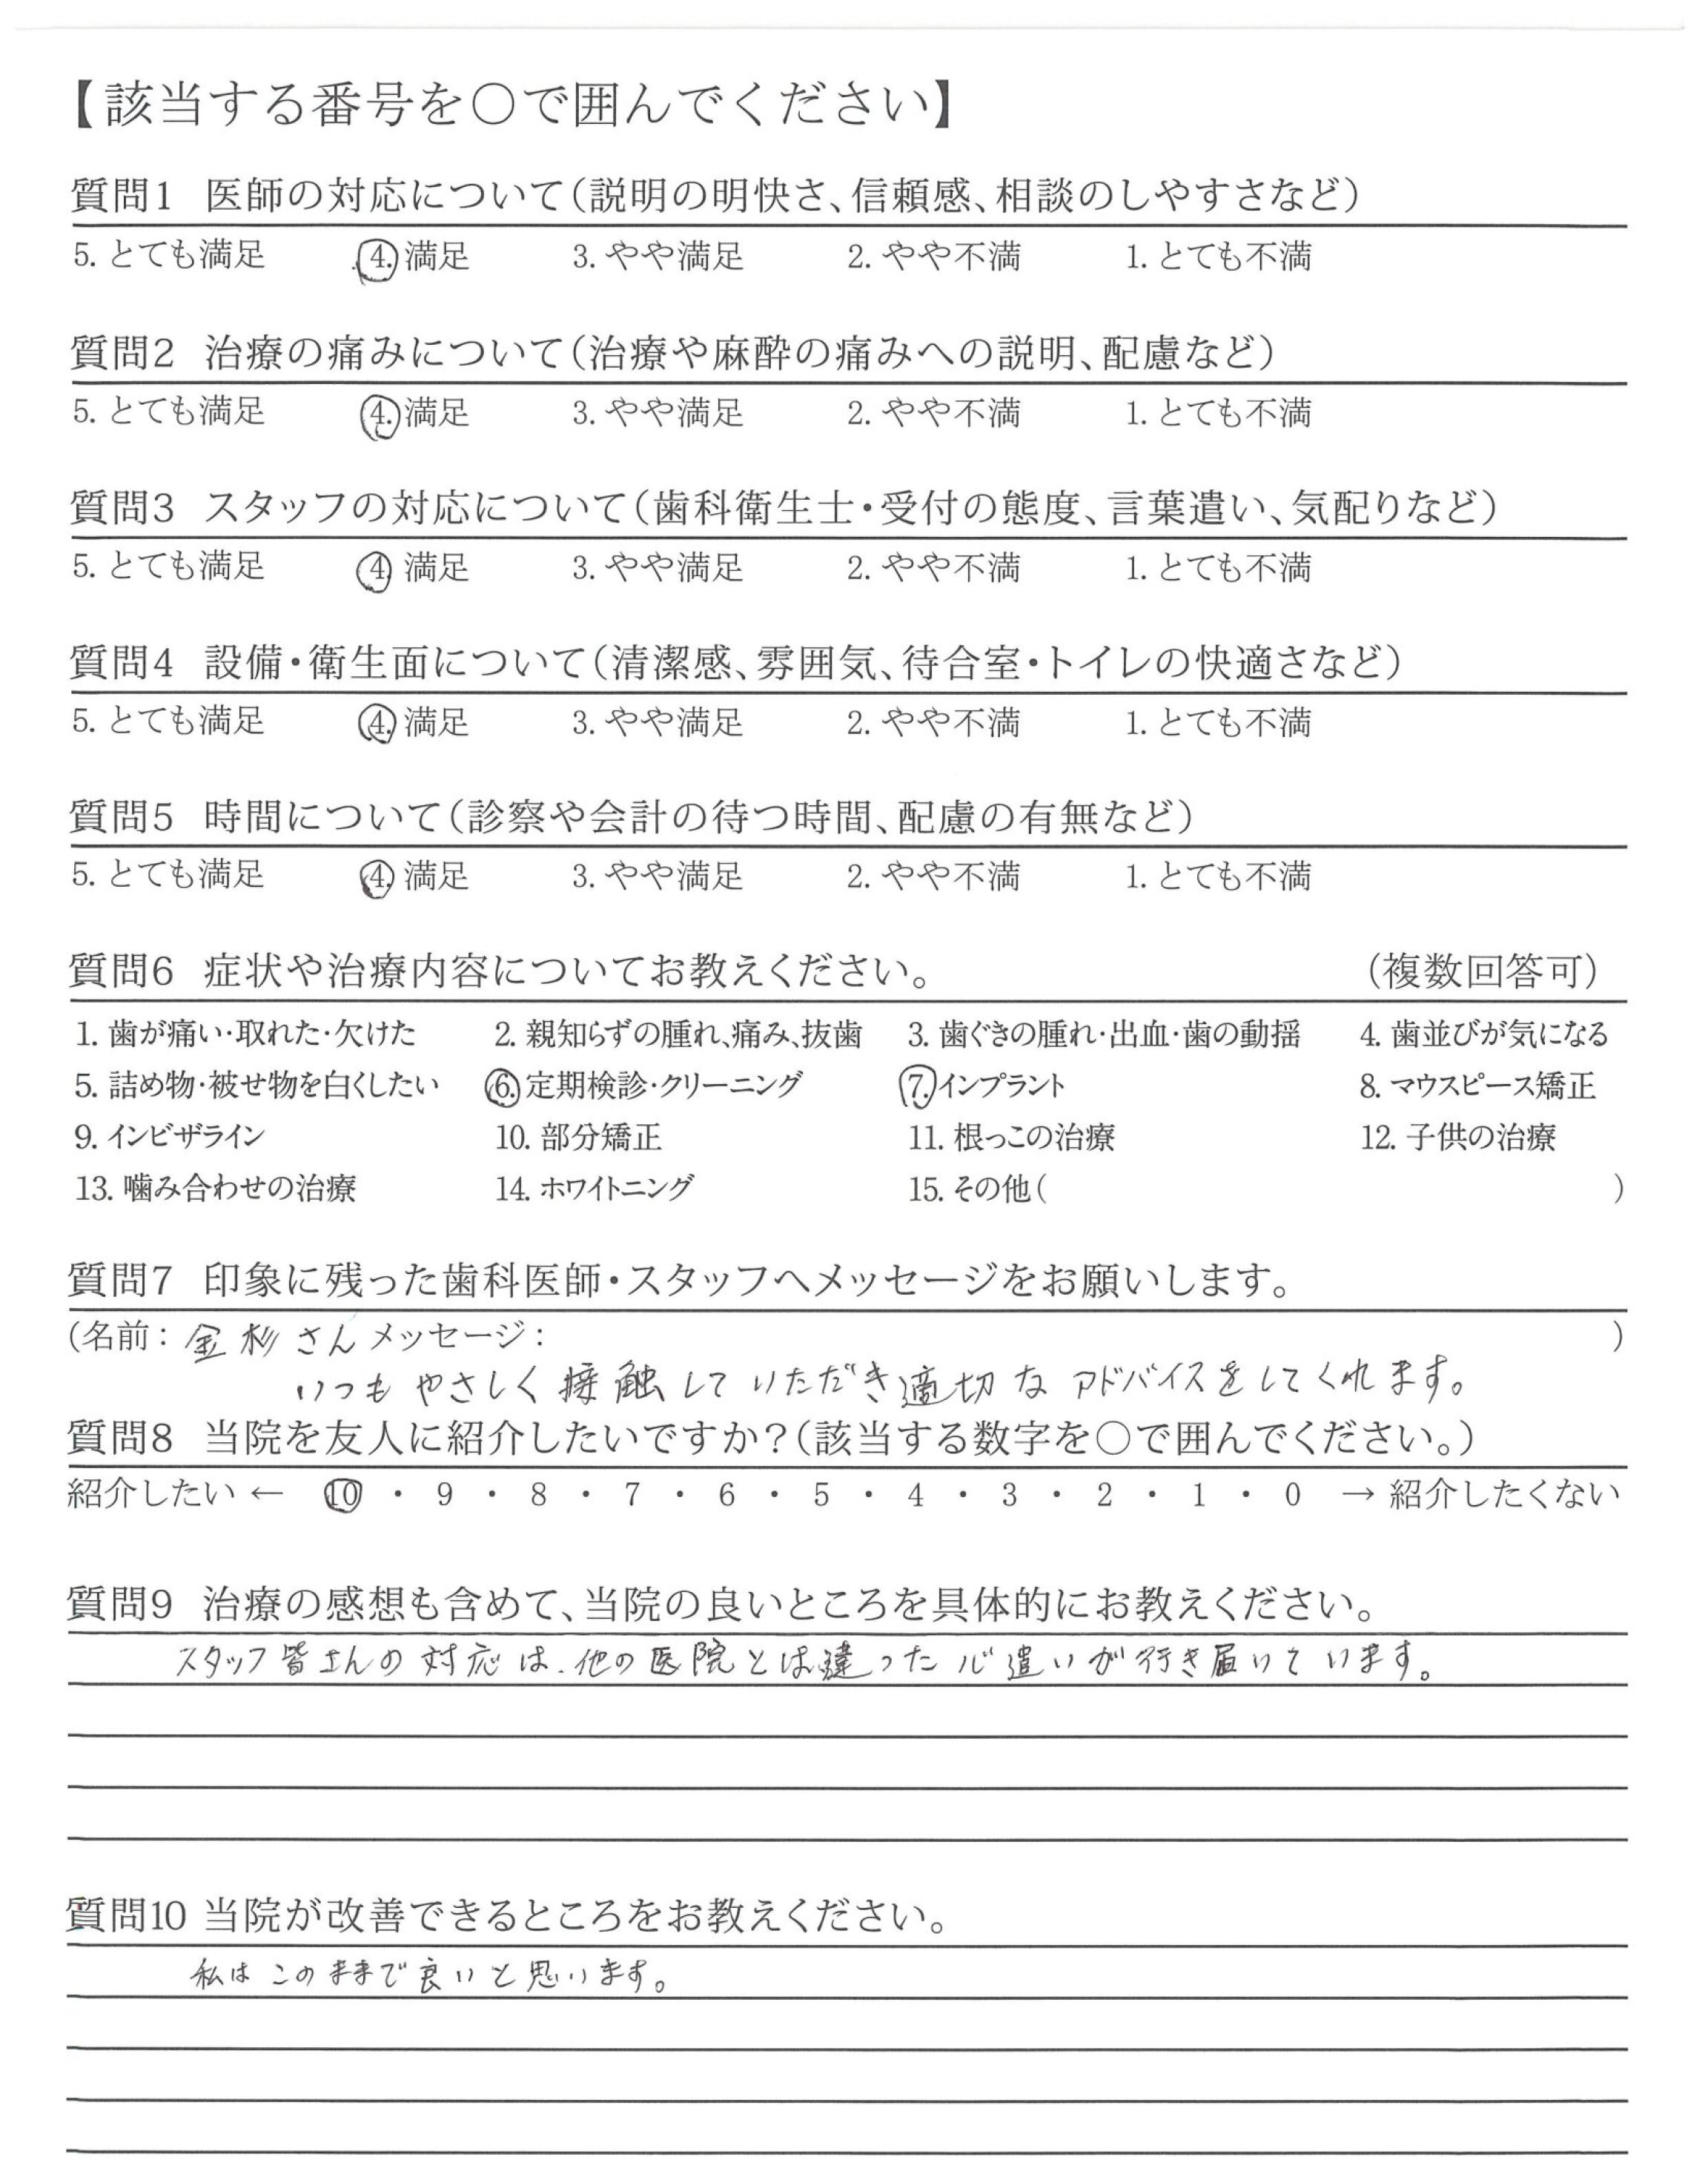 【該当する番号を○で囲んでください】
質問1 医師の対応について(説明の明快さ、信頼感、相談のしやすさなど)
5. とても満足 4. 満足 3. やや満足 2. やや不満 1. とても不満
質問2 治療の痛みについて(治療や麻酔の痛みへの説明、配慮など)
5. とても満足 4. 満足 3. やや満足 2. やや不満 1. とても不満
質問3 スタッフの対応について(歯科衛生士・受付の態度、言葉遣い、気配りなど)
5. とても満足 4. 満足 3. やや満足 2. やや不満 1. とても不満
質問4 設備・衛生面について(清潔感、雰囲気、待合室・トイレの快適さなど)
5. とても満足 4. 満足 3. やや満足 2. やや不満 1. とても不満
質問5 時間について(診察や会計の待つ時間、配慮の有無など)
5. とても満足 4. 満足 3. やや満足 2. やや不満 1. とても不満
質問6 症状や治療内容についてお教えください。 (複数回答可)
1. 歯が痛い・取れた・欠けた 2. 親知らずの腫れ、痛み、抜歯 3. 歯ぐきの腫れ・出血・歯の動揺 4. 歯並びが気になる
5. 詰め物・被せ物を白くしたい 6. 定期検診・クリーニング 7. インプラント 8. マウスピース矯正
9. インビザライン 10. 部分矯正 11. 根っこの治療 12. 子供の治療
13. 噛み合わせの治療 14. ホワイトニング 15. その他( )
質問7 印象に残った歯科医師・スタッフへメッセージをお願いします。
(名前: 金杉さん メッセージ: )
いつもやさしく接触していただき適切なアドバイスをしてくれます。
質問8 当院を友人に紹介したいですか?(該当する数字を○で囲んでください。)
紹介したい ← 10 ・ 9 ・ 8 ・ 7 ・ 6 ・ 5 ・ 4 ・ 3 ・ 2 ・ 1 ・ 0 → 紹介したくない
質問9 治療の感想も含めて、当院の良いところを具体的にお教えください。
スタッフ皆さんの対応は、他の医院とは違った心遣いが行き届いています。
質問10 当院が改善できるところをお教えください。
私はこのままで良いと思います。